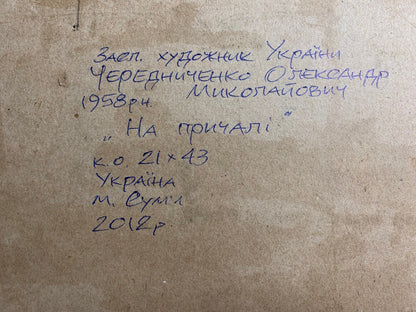 Засл. художник України
Чередниченко Олександр
1958 р.н. Миколайович
„На причалі"
к.о. 21×43
Україна
м. Суми
2012 р.